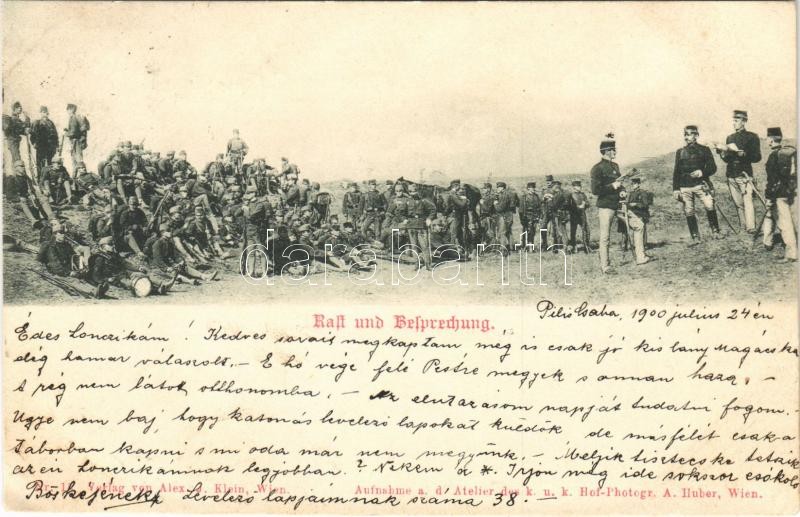 darabanth
Rast und Besprechung.
Pilis Csaba, 1900 julius 24 én
Édes Lonczikám! Kedves sorait megkaptam még is csak jó kis lány Magácska
elég hamar válaszolt.- E hó vége felé Pestre megyek s onnan haza.-
A rég nem látott otthonomba.- Az elutazásom napját tudatni fogom.-
Ugye nem baj, hogy katonás levelező lapokat küldök de másfélét csak a
táborban kapni s mi oda már nem megyünk.- Melyik tisztecske tetszik
az én Lonczikámnak legjobban.? Nekem a * Irjon még ide sokszor csókolja
Verlag von Alex. J. Klein, Wien. Aufnahme a. d. Atelier des k. u. k. Hof-Photogr. A. Huber, Wien.
Levelező lapjaimnak száma 38.-